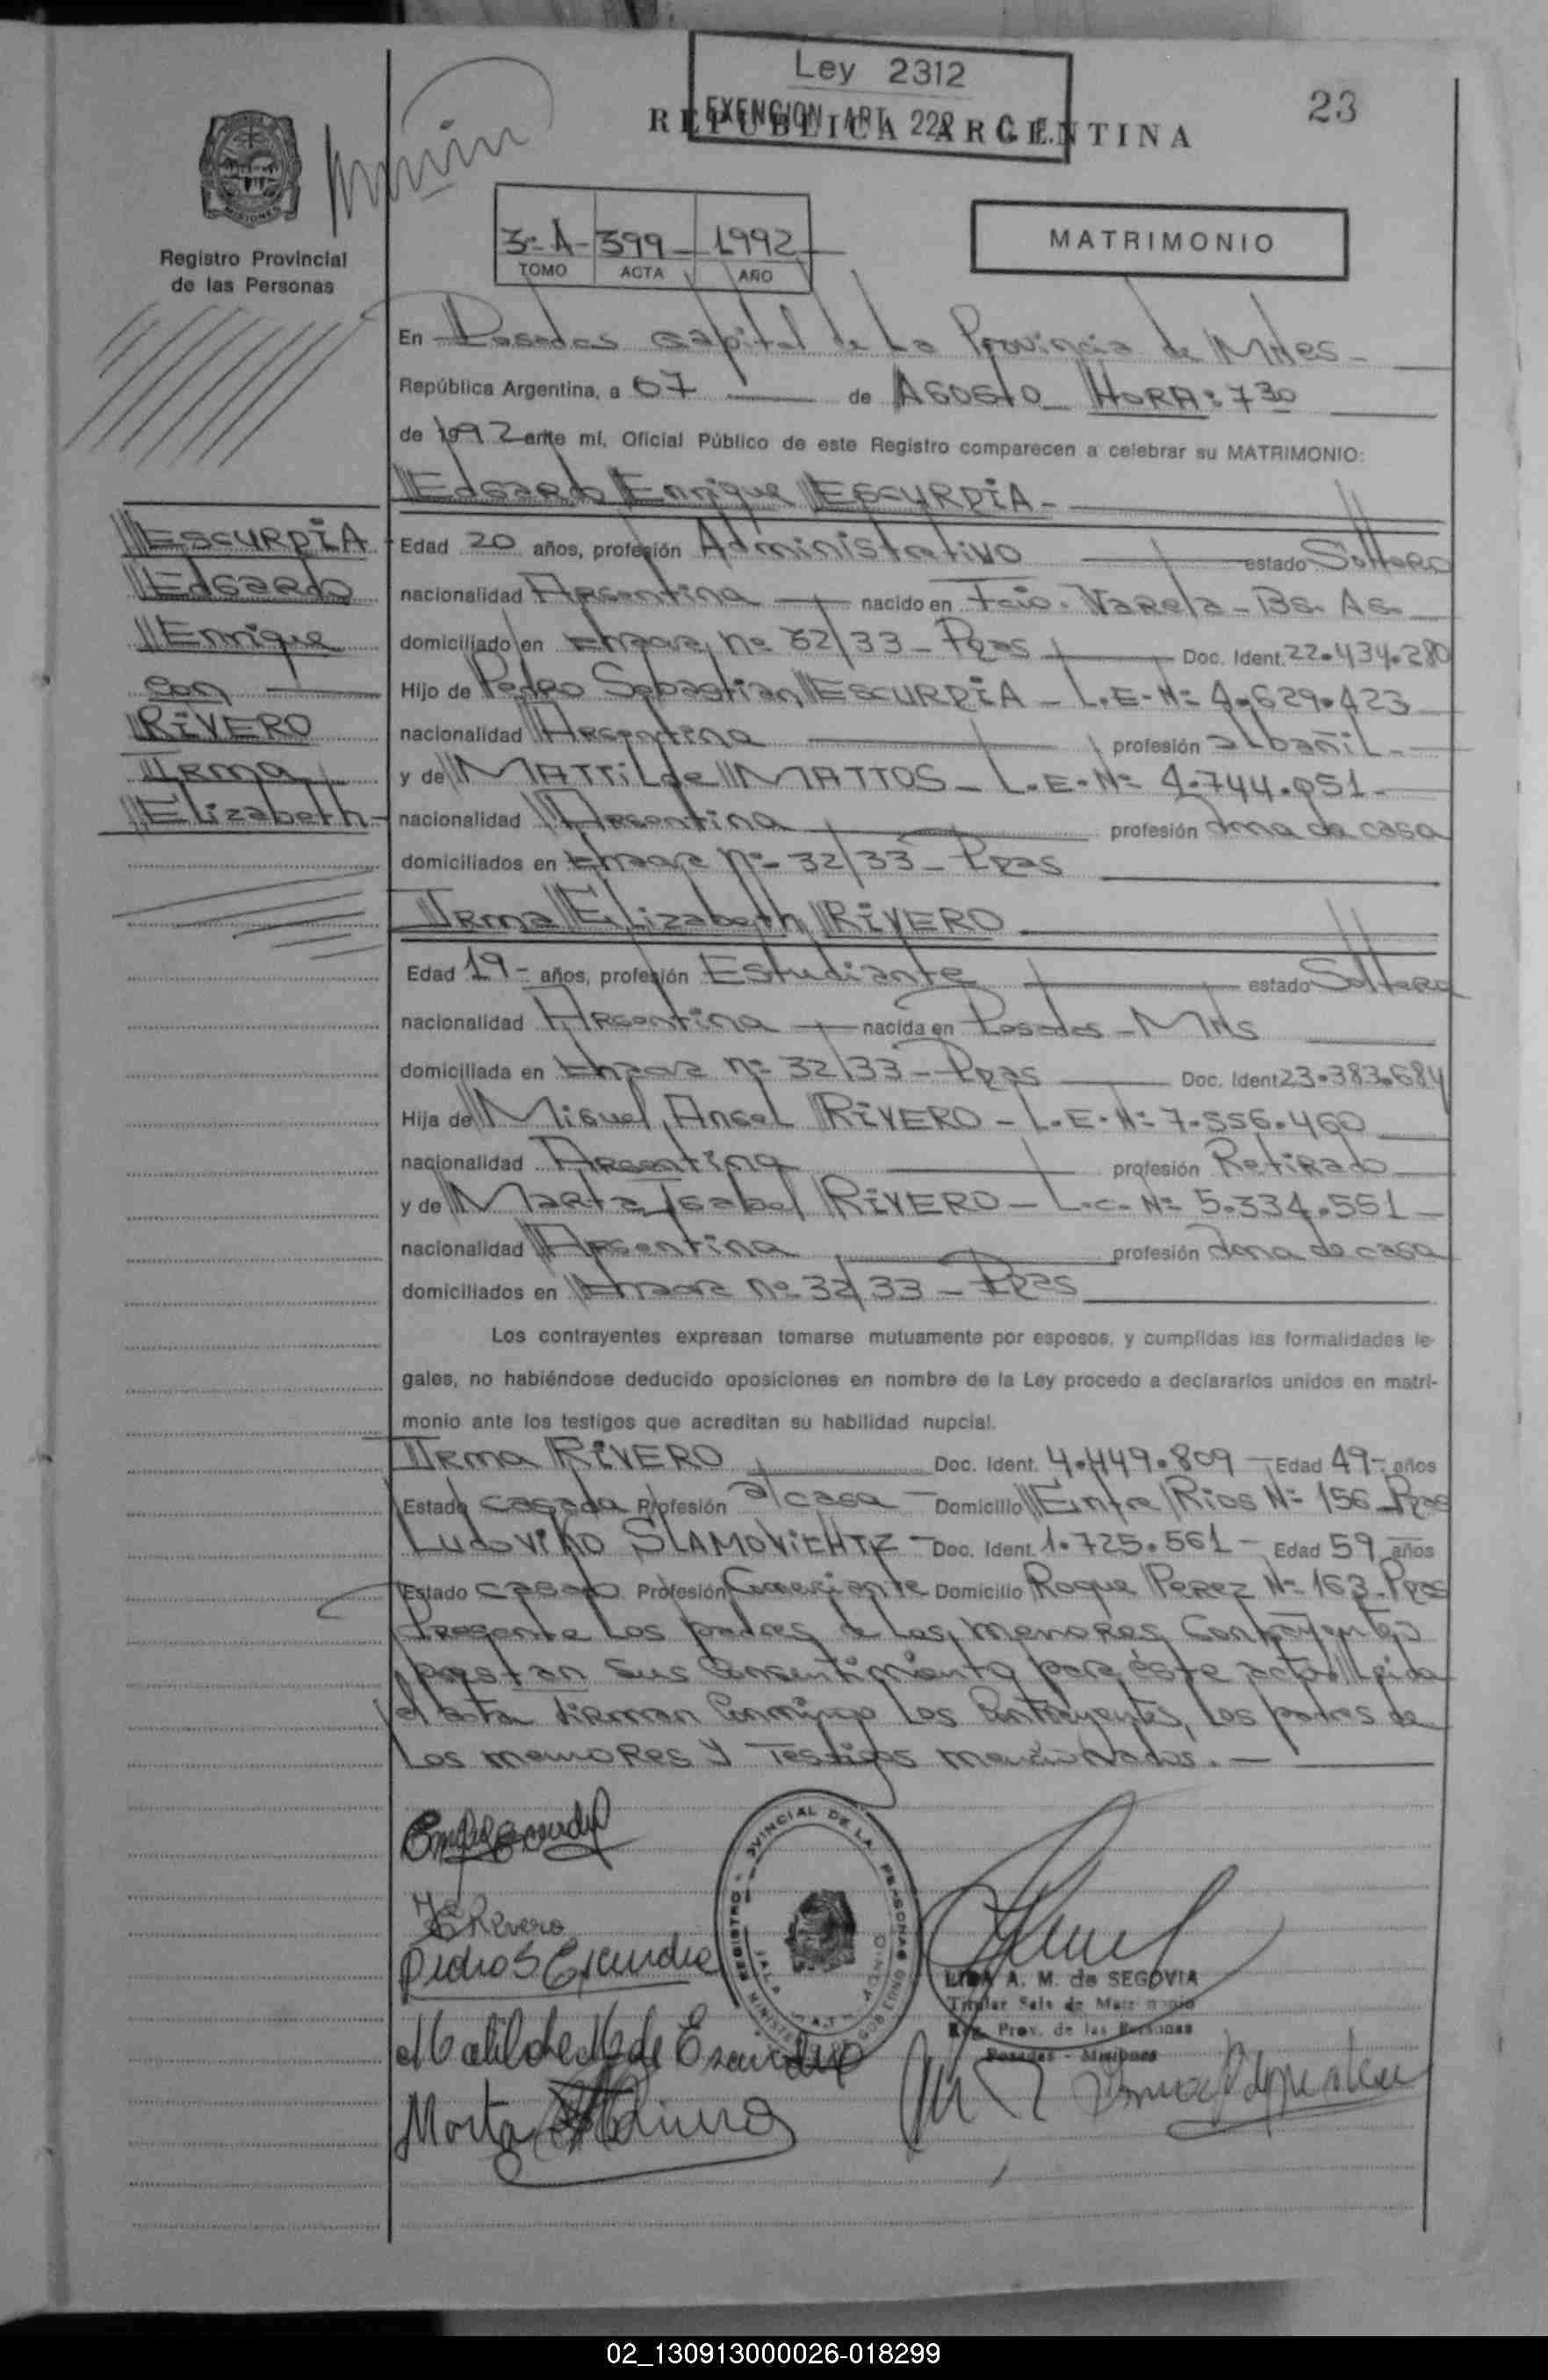 Ley 2312
EXENCION ART. 222 C. F.
23
REPUBLICA ARGENTINA
MISIONES
Registro Provincial
de las Personas
3º A - 399 - 1992
TOMO ACTA AÑO
MATRIMONIO
En Posadas Capital de La Provincia de Mnes -
República Argentina, a 07 de Agosto HORA: 7 30
de 1992 ante mí, Oficial Público de este Registro comparecen a celebrar su MATRIMONIO:
Edgardo Enrique ESCURDIA -
ESCURDIA
Edgardo
Enrique
con
RIVERO
Irma
Elizabeth -
Edad 20 años, profesión Administrativo estado Soltero
nacionalidad Argentina nacido en Fcio. Varela - Bs. As.
domiciliado en nº 32/33 - Pdas Doc. Ident. 22.434.280
Hijo de Pedro Sebastian ESCURDIA - L.E. Nº 4.629.423
nacionalidad Argentina profesión albañil -
y de MATTilde MATTOS - L.E. Nº 4.744.051 -
nacionalidad Argentina profesión ama de casa
domiciliados en nº 32/33 - Pdas
Irma Elizabeth RIVERO
Edad 19 - años, profesión Estudiante estado Soltera
nacionalidad Argentina nacida en Posadas - Mns
domiciliada en nº 32/33 - Pdas Doc. Ident 23.383.684
Hija de Miguel Angel RIVERO - L.E. Nº 7.556.460
nacionalidad Argentina profesión Retirado
y de Marta Isabel RIVERO - L.C. Nº 5.334.551 -
nacionalidad Argentina profesión ama de casa
domiciliados en nº 32/33 - Pdas
Los contrayentes expresan tomarse mutuamente por esposos, y cumplidas las formalidades le-
gales, no habiéndose deducido oposiciones en nombre de la Ley procedo a declararlos unidos en matri-
monio ante los testigos que acreditan su habilidad nupcial.
Irma RIVERO Doc. Ident. 4.449.809 - Edad 49 - años
Estado casada Profesión a/casa - Domicilio Entre Rios Nº 156 Pdas
Ludoviko Doc. Ident. 1.725.561 - Edad 59 años
Estado casado Profesión Comerciante Domicilio Roque Perez Nº 163 - Pdas
Presente Los padres de Los menores Contrayentes
prestan sus Consentimiento para éste acto. Leida
el acta firman Conmigo Los Contrayentes, Los padres de
Los menores y Testigos mencionados. -
I E Rivero
Pedro S Escurdia
Matilde M de Escurdia
Marta
REGISTRO PROVINCIAL DE LAS PERSONAS
LIDA A. M. de SEGOVIA
Titular Sala de Matrimonio
Reg. Prov. de las Personas
Posadas - Misiones
02_130913000026-018299